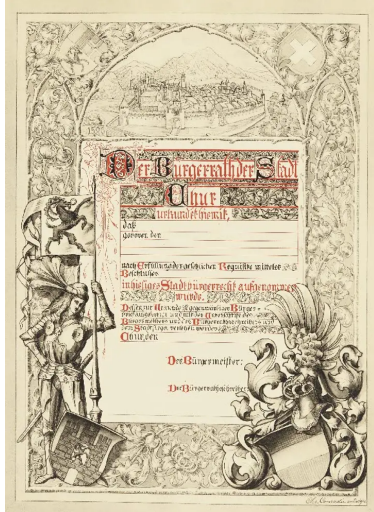 Der Bürgerrath der Stadt
Chur
urkundet hiemit,
daß
geboren den
nach Erfüllung der gesetzlichen Requisite mittelst
Beschlusses
in hiesiges Stadtbürgerrecht aufgenommen
wurde.
Dessen zur Urkunde ist gegenwärtiger Bürger-
Chur, den
Der Bürgermeister:
Der Bürgerrathsschreiber: